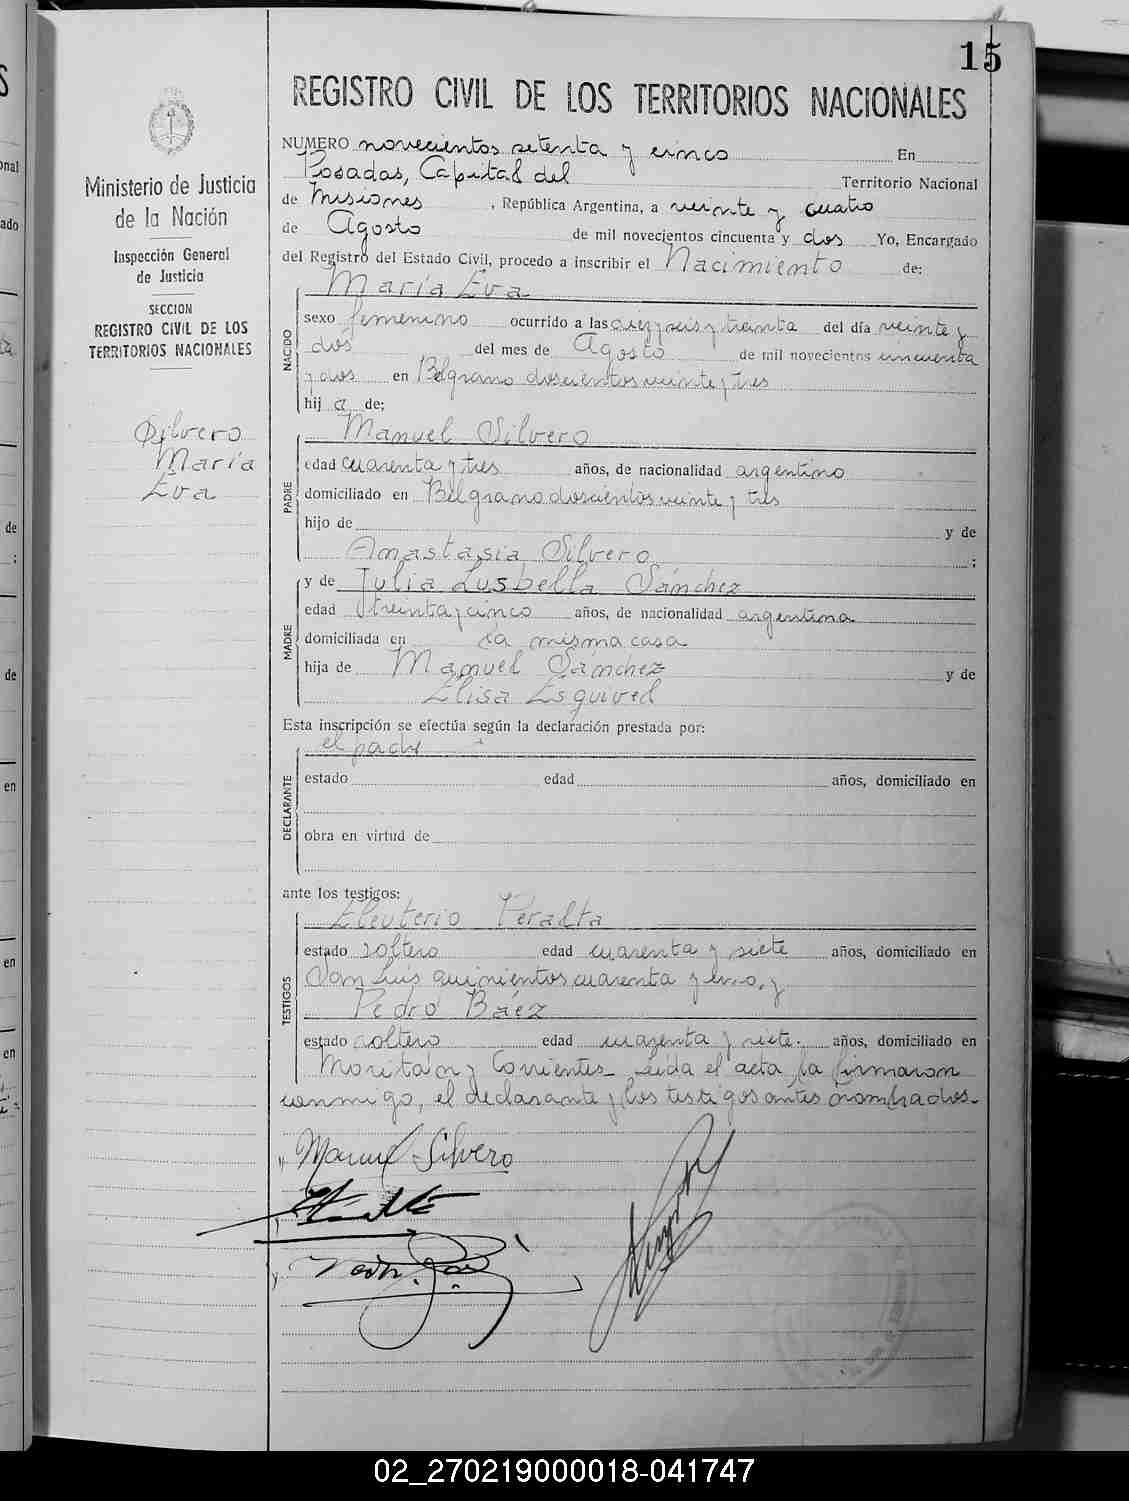 15
REGISTRO CIVIL DE LOS TERRITORIOS NACIONALES
Ministerio de Justicia
de la Nación
Inspección General
de Justicia
SECCION
REGISTRO CIVIL DE LOS
TERRITORIOS NACIONALES
Silvero
María
Eva
NUMERO novecientos setenta y cinco En
Posadas, Capital del Territorio Nacional
de Misiones, República Argentina, a veinte y cuatro
de Agosto de mil novecientos cincuenta y dos Yo, Encargado
del Registro del Estado Civil, procedo a inscribir el Nacimiento de:
NACIDO
María Eva
sexo femenino ocurrido a las diez y seis y treinta del día veinte y
dos del mes de Agosto de mil novecientos cincuenta
y dos en Belgrano doscientos veinte y tres
hij a de:
PADRE
Manuel Silvero
edad cuarenta y tres años, de nacionalidad argentino
domiciliado en Belgrano doscientos veinte y tres
hijo de y de
Anastasia Silvero ;
MADRE
y de Julia Lusbella Sánchez
edad treinta y cinco años, de nacionalidad argentina
domiciliada en la misma casa
hija de Manuel Sánchez y de
Elisa Esquivel
Esta inscripción se efectúa según la declaración prestada por:
DECLARANTE
el padre
estado edad años, domiciliado en
obra en virtud de
ante los testigos:
TESTIGOS
Eleuterio Peralta
estado soltero edad cuarenta y siete años, domiciliado en
San Luis quinientos cuarenta y uno, y
Pedro Báez
estado soltero edad cuarenta y siete. años, domiciliado en
y Corrientes- Leída el acta, la firmaron
conmigo, el declarante y los testigos antes nombrados.-
Manuel Silvero
02_270219000018-041747